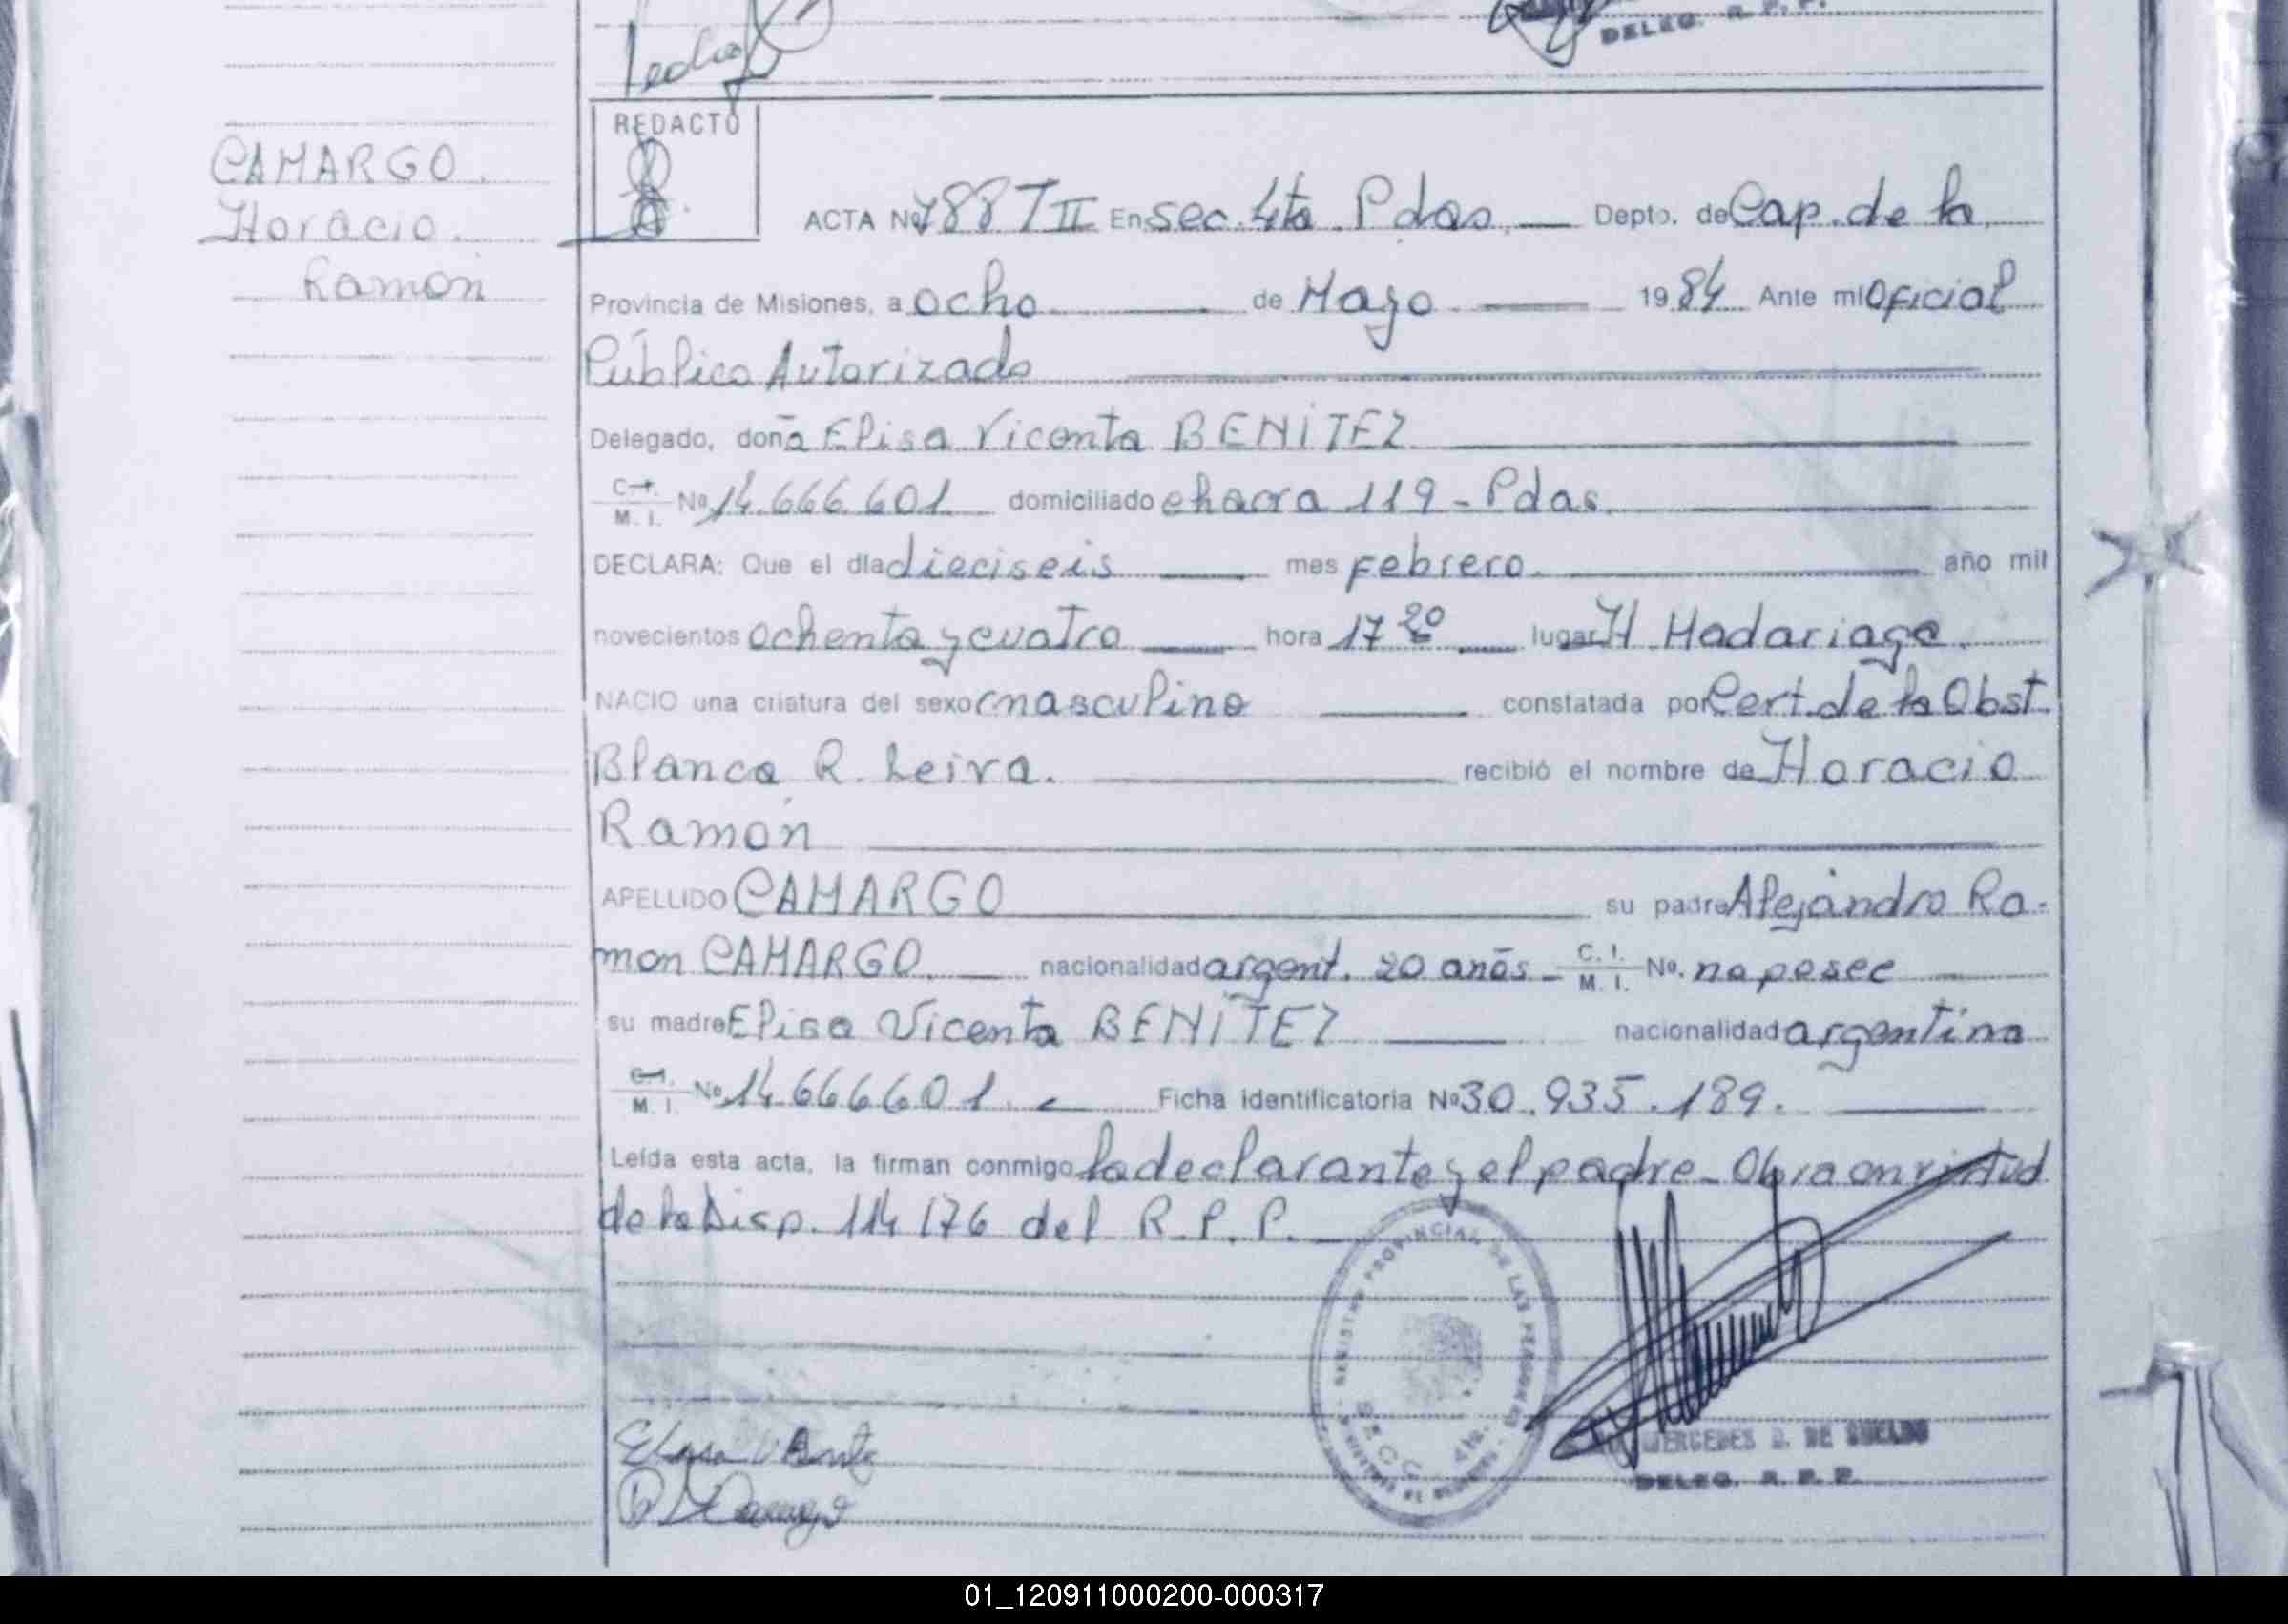 DELEG. R. P. P.
REDACTO
CAMARGO
Horacio
Ramón
ACTA Nº 788 T II En Sec. 4ta Pdas, Depto. de Cap. de la
Provincia de Misiones, a ocho de Mayo 1984 Ante mí Oficial
Público Autorizado
Delegado, doña Elisa Vicenta BENÍTEZ
C.I. M. I. Nº 14.666.601 domiciliado chacra 119 - Pdas.
DECLARA: Que el día dieciseis mes Febrero. año mil
novecientos ochenta y cuatro hora 17 20 lugar H Madariaga.
NACIO una criatura del sexo masculino constatada por Cert. de la Obst.
Blanca R. Leiva. recibió el nombre de Horacio
Ramón
APELLIDO CAMARGO su padre Alejandro Ra-
mon CAMARGO. nacionalidad argent. 20 años - C. I. M. I. Nº. no posee
su madre Elisa Vicenta BENÍTEZ nacionalidad argentina
C.I. M. I. Nº 14.666601. Ficha identificatoria Nº 30.935.189.
Leída esta acta, la firman conmigo la declarante y el padre - Obra en virtud
de la Disp. 114/76 del R. P. P.
REGISTRO PROVINCIAL DE LAS PERSONAS
SECC. 4ta.
MERCEDES D. DE SUELDO
DELEG. R. P. P.
01_120911000200-000317